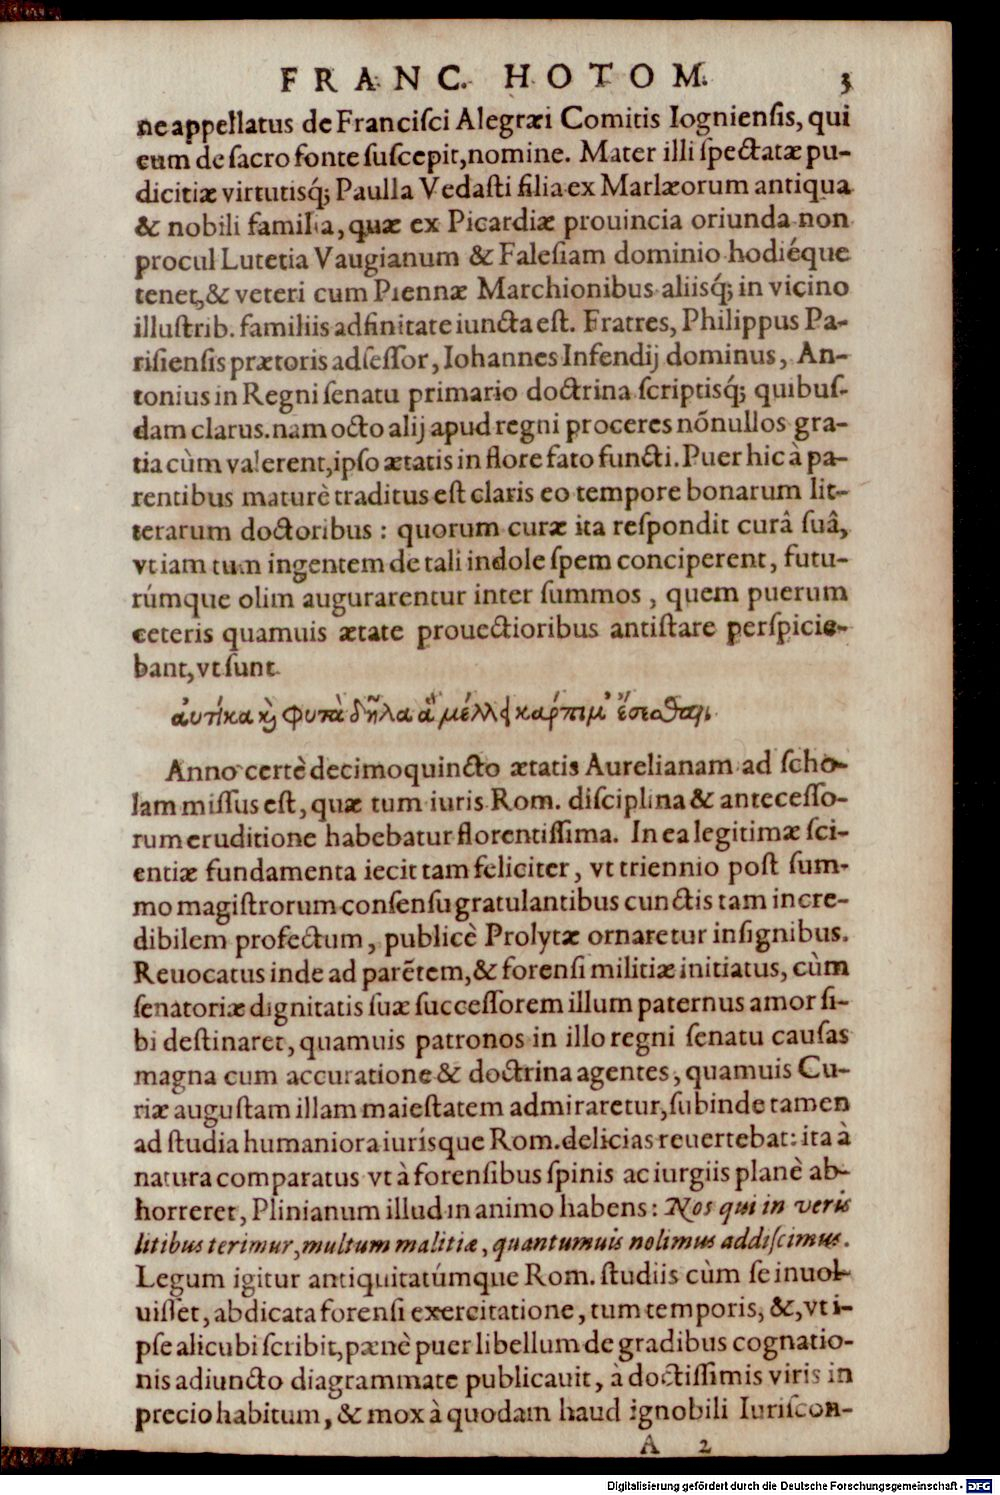 FRANC. HOTOM. 3
ne appellatus de Franciſci Alegræi Comitis Iognienſis, qui
eum de ſacro fonte ſuſcepit, nomine. Mater illi ſpectatæ pu-
dicitiæ virtutisq́; Paulla Vedaſti filia ex Marlæorum antiqua
& nobili familia, quæ ex Picardiæ prouincia oriunda non
procul Lutetia Vaugianum & Faleſiam dominio hodiéque
tenet, & veteri cum Piennæ Marchionibus aliisq́; in vicino
illuſtrib. familiis adfinitate iuncta eſt. Fratres, Philippus Pa-
riſienſis prætoris adſeſſor, Iohannes Infendij dominus, An-
tonius in Regni ſenatu primario doctrina ſcriptisq́; quibuſ-
dam clarus. nam octo alij apud regni proceres nõnullos gra-
tia cùm valerent, ipſo ætatis in flore fato functi. Puer hic à pa-
rentibus maturè traditus eſt claris eo tempore bonarum lit-
terarum doctoribus : quorum curæ ita reſpondit curâ ſuâ,
vt iam tum ingentem de tali indole ſpem conciperent, futu-
rúmque olim augurarentur inter ſummos , quem puerum
ceteris quamuis ætate prouectioribus antiſtare perſpicie-
bant, vt ſunt
αὐτίκα κ̀ φυτὰ δῆλα ἃ μέλλει κάρπιμ' ἔσεσθαι.
Anno certè decimoquincto ætatis Aurelianam ad ſcho-
lam miſſus eſt, quæ tum iuris Rom. diſciplina & anteceſſo-
rum eruditione habebatur florentiſſima. In ea legitimæ ſci-
entiæ fundamenta iecit tam feliciter, vt triennio poſt ſum-
mo magiſtrorum conſenſu gratulantibus cunctis tam incre-
dibilem profectum, publicè Prolytæ ornaretur inſignibus.
Reuocatus inde ad parẽtem, & forenſi militiæ initiatus, cùm
ſenatoriæ dignitatis ſuæ ſucceſſorem illum paternus amor ſi-
bi deſtinaret, quamuis patronos in illo regni ſenatu cauſas
magna cum accuratione & doctrina agentes, quamuis Cu-
riæ auguſtam illam maieſtatem admiraretur, ſubinde tamen
ad ſtudia humaniora iurísque Rom. delicias reuertebat: ita à
natura comparatus vt à forenſibus ſpinis ac iurgiis planè ab-
horreret, Plinianum illud in animo habens: Nos qui in veris
litibus terimur, multum malitiæ, quantumuis nolimus addiſcimus.
Legum igitur antiquitatúmque Rom. ſtudiis cùm ſe inuol-
uiſſet, abdicata forenſi exercitatione, tum temporis, &, vt i-
pſe alicubi ſcribit, pænè puer libellum de gradibus cognatio-
nis adiuncto diagrammate publicauit, à doctiſſimis viris in
precio habitum, & mox à quodam haud ignobili Iuriſcon-
A 2
Digitalisierung gefördert durch die Deutsche Forschungsgemeinschaft - DFG